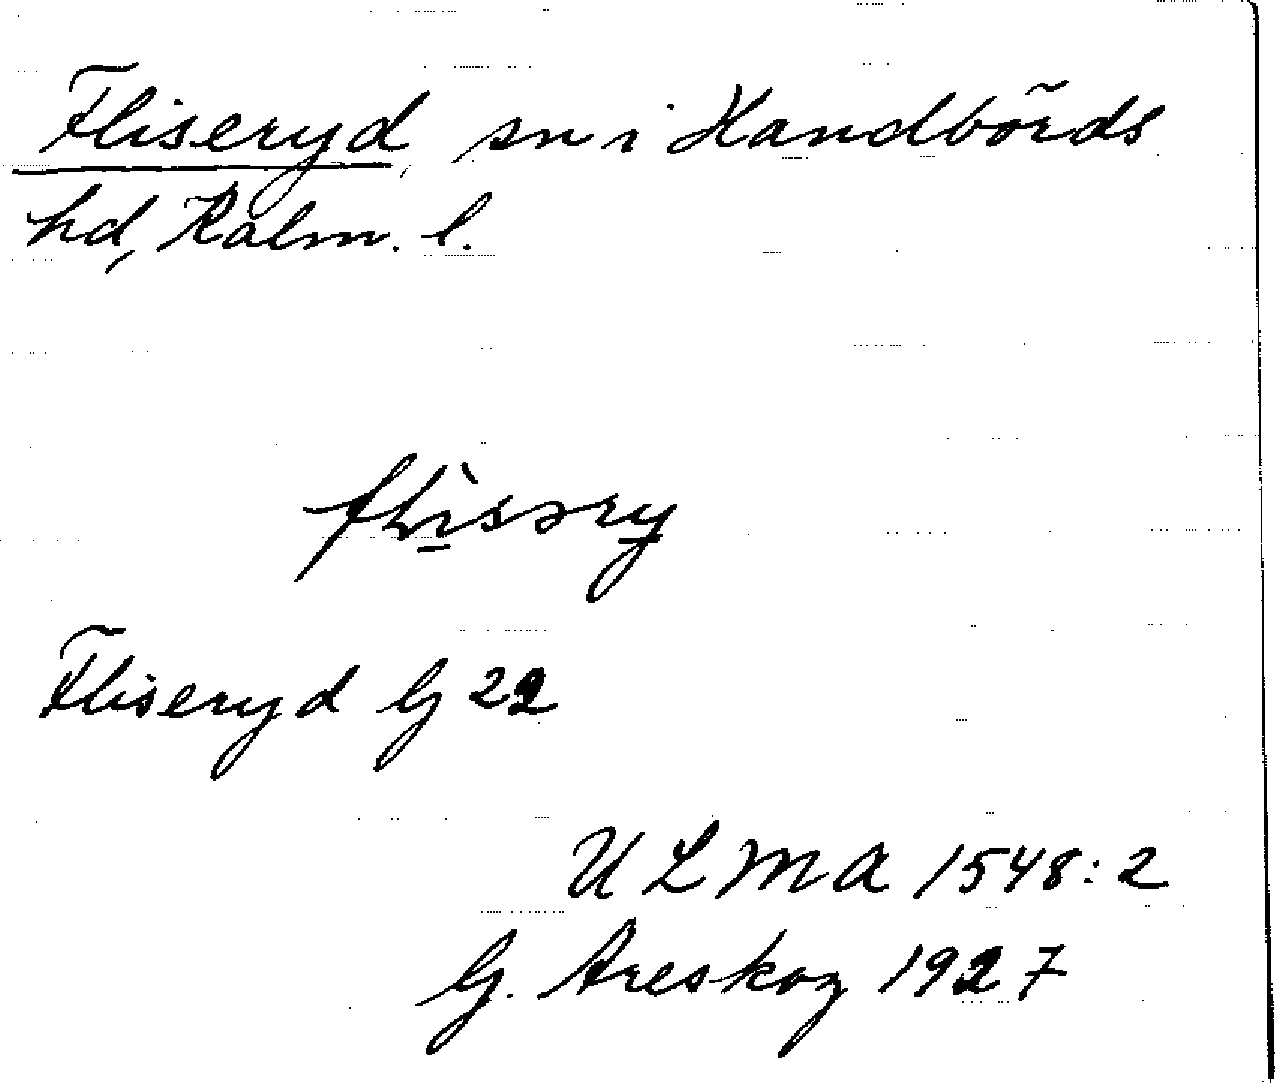 Fliseryd, sn i Handbörds
hd, Kalm. l.
flìsəry
Fliseryd G 22
ULMA 1548:2
G. Areskog 1927